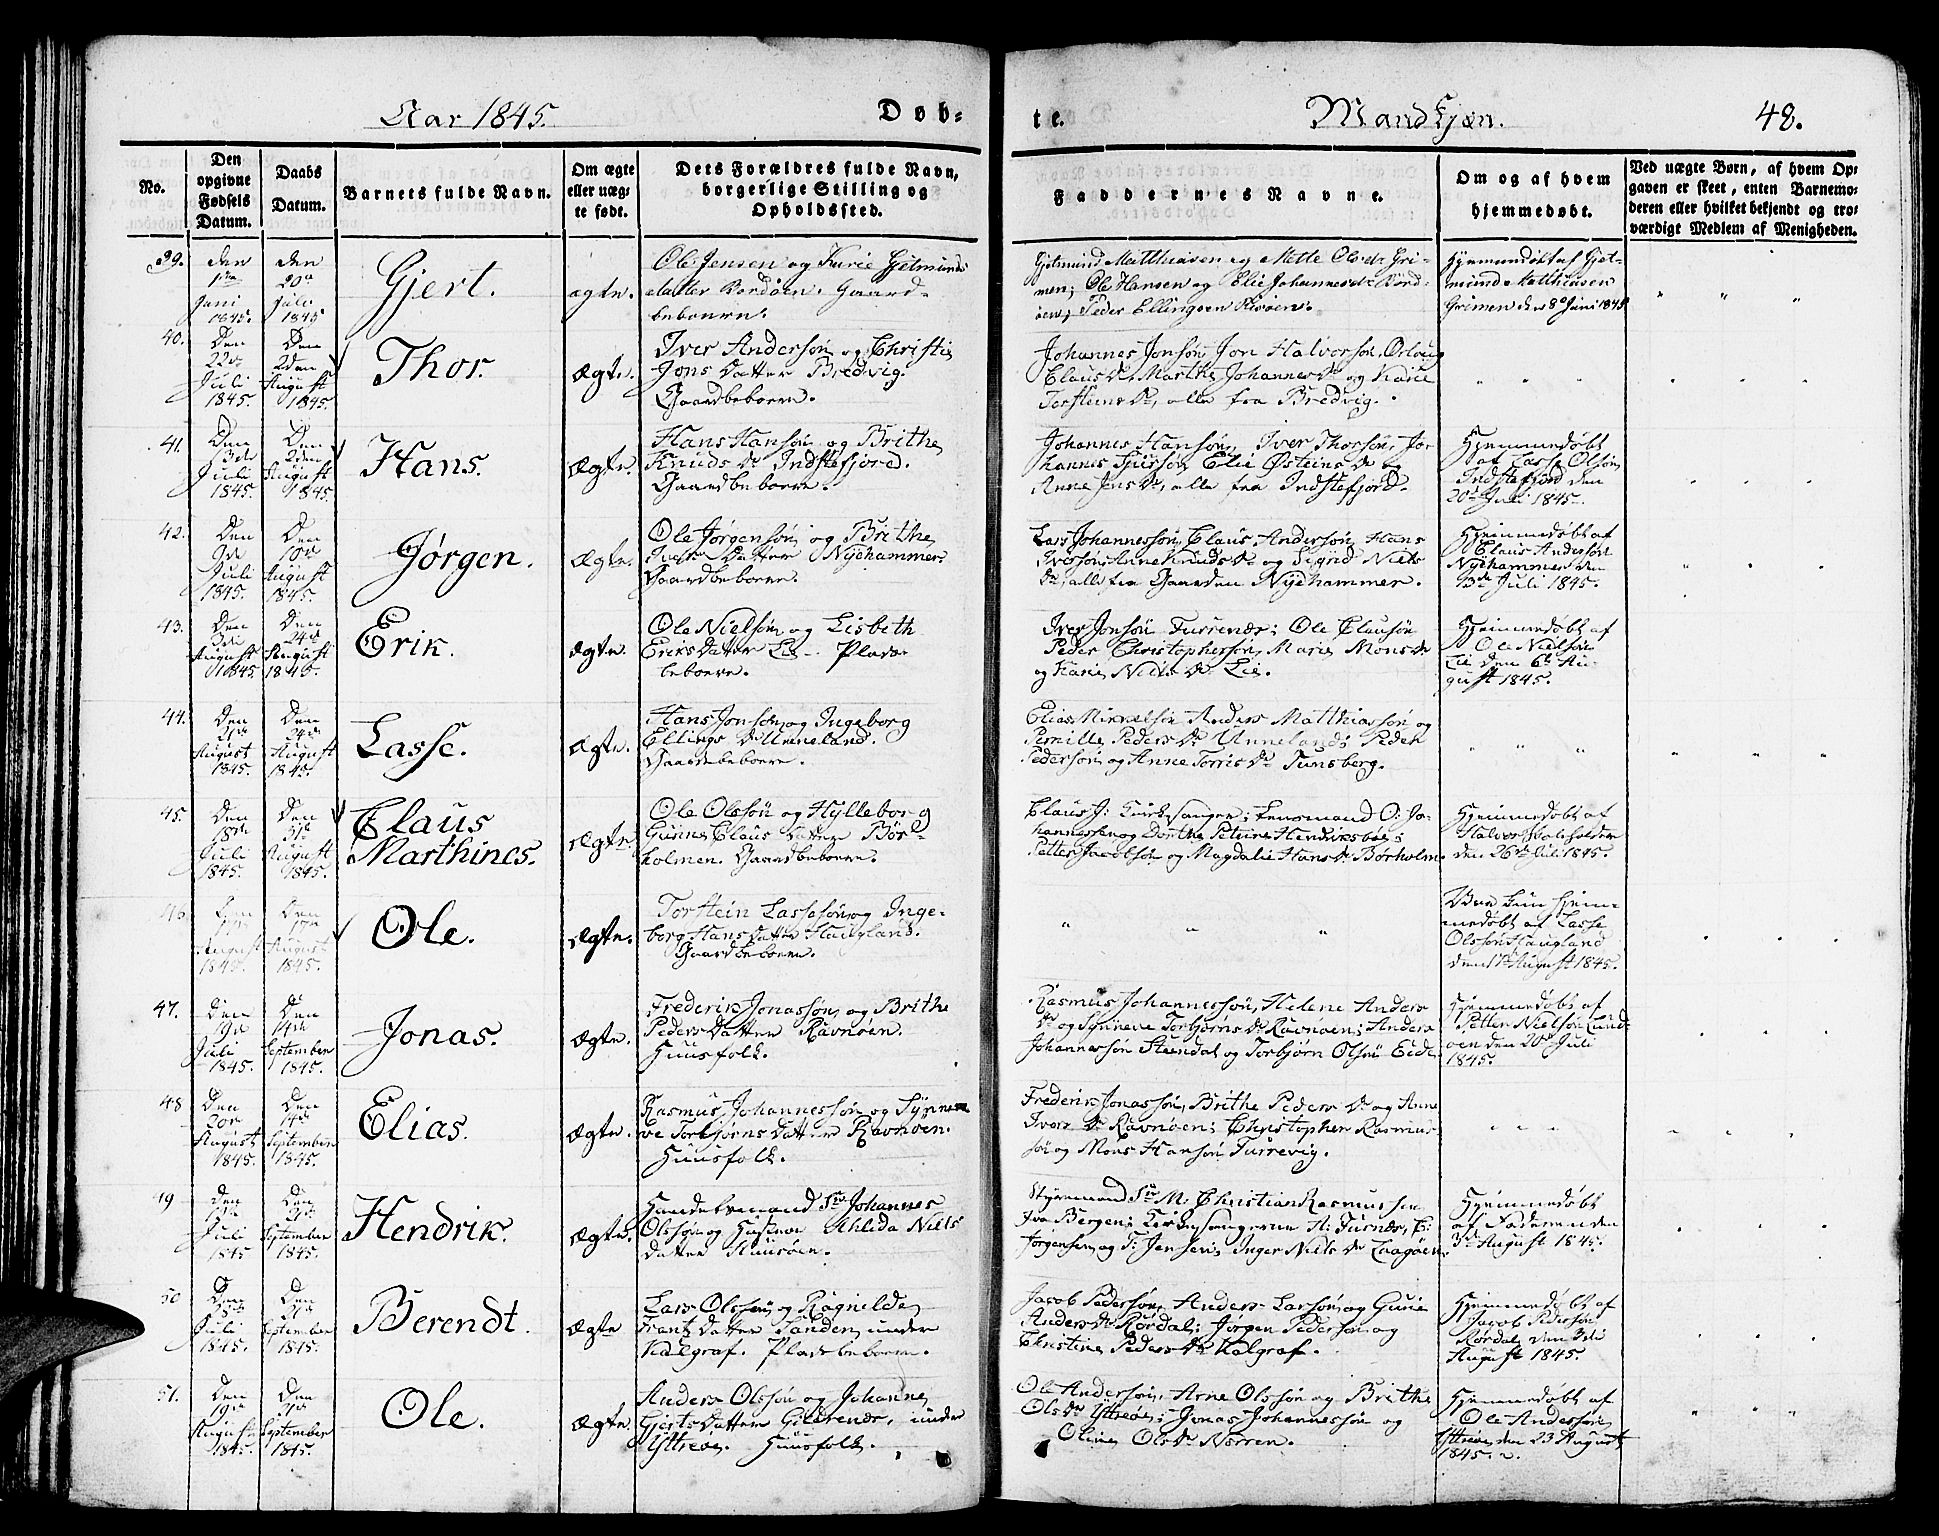 Aar 1845.
Døb-
te.
Mandkjøn.
48.
No.
Den opgivne Fødsels Datum.
Daabs Datum.
Barnets fulde Navn.
Om ægte eller uæg-te født.
Dets Forældres fulde Navn, borgerlige Stilling og Opholdssted.
Faddernes Navne.
Om og af hvem hjemmedøbt.
Ved uægte Børn, af hvem Op-gaven er skeet, enten Barnemo-deren eller hvilket bekjendt og tro-værdigt Medlem af Menigheden.
39.
den
Juni
1845.
den
20de
Juli
1845
Gjert.
ægte.
Ole Jensen og Karie Gjetmunds
datter Gaard-
beboere.
Gjetmund Matthiasen og Mette Olsdr Gri-
men; Ole Hansen og Elie Johannesdr
Peder Ellingsen Risøen.
Hjemmedøbt af Gjet-
mund Matthiasen
Grimen den 8de Juni 1845
40.
Den
22de
Juli
1845.
Den
2den
August
1845.
Thor.
Ægte.
Iver Andersøn og Christi
Jons Datter Bredvig.
Gaardbeboere.
Johannes Jonsøn, Jon Halvorsøn,
Claus Dr, Marthe Johannes Dr og Karie
Torsteins Dr, alle fra Bredvig.
41.
Den
13de
Juli
1845.
Den
2den
August
1845.
Hans.
Ægte.
Hans Hansøn og Brithe
Knuds Dr Indstefjord.
Gaardbeboere.
Johannes Hansøn, Iver Thorsøn, Jo-
hannes Elie Østeins Dr og
Anne Jens Dr, alle fra Indstefjord.
Hjemmedøbt
af Lasse Olsøn
Indstefjord den
20de Juli 1845.
42.
Den
9de
Juli
1845.
Den
10de
August
1845.
Jørgen.
Ægte.
Ole Jørgensøn og Brithe
Datter Nyehammer.
Gaardbeboere.
Lars Johannessøn, Claus Andersøn, Hans
Anne Knuds Dr og Sigrid Niels
Dr, alle fra Gaarden Nyehammer.
Hjemmedøbt af
Claus Andersøn
Nyehammer den
13de Juli 1845.
43.
Den
3de
August
1845.
Den
24de
August
1845.
Erik.
Ægte.
Ole Nielsøn og Lisbeth
Eriks Datter Lie. Plads-
beboere.
Iver Jonsøn Furrenæs; Ole Clausøn
Peder Christophersøn, Marie Mons Dr
og Karie Niels Dr Lie.
Hjemmedøbt af
Ole Nielsøn
Lie den 6te Au-
gust 1845.
44.
Den
21de
August
1845.
Den
24de
August
1845.
Lasse.
Ægte.
Hans Jonsøn og Ingeborg
Ellings Dr Unneland.
Gaardbeboere.
Elias Mikkelsøn Anders Matthiassøn og
Pernille Peders Dr Unneland; Peder
Pedersøn og Anne Torris Dr Tunsberg.
45.
Den
18de
Juli
1845.
Den
31te
August
1845.
Claus
Marthines.
Ægte.
Ole Olssøn og Hylleborg
Gunne Claus Datter Bør-
holmen. Gaardbeboere.
Claus J: Kirkesanger; Lensmand O: Jo-
hannessen og Dorthe Petrine
Petter Jacobsøn og Magdalie Hans Dr Børholm.
Hjemmedøbt af
Halvor
den 26de Juli 1845.
46.
August
1845.
Den
17de
August
1845.
Ole.
Ægte.
Torstein Lassesøn og Inge-
borg Hans Datter Haugland.
Gaardbeboere.
Var kun hjem-
medøbt af Lasse
Olssøn Haugland
den 17de August 1845.
47.
Den
19de
Juli
1845.
Den
14de
September
1845.
Jonas.
Ægte.
Frederik Jonassøn og Brithe
Peders Datter Ravnøen.
Huusfolk.
Rasmus Johannessøn, Helene Anders
Dr og Synneve Torbjørns Dr Ravnøen; Anders
Johannessøn Steendal og Torbjørn Olsøn Eide.
Hjemmedøbt af
Petter Nielsøn Lund-
øen den 20de Juli
1845.
48
Den
20de
August
1845.
Den
14de
September
1845.
Elias.
Ægte.
Rasmus Johannessøn og Synne-
ve Torbjørns Datter Ravnøen.
Huusfolk.
Frederik Jonassøn, Brithe Peders Dr og Anne
Ivers Dr Ravnøen; Christopher Rasmus-
søn og Mons Hansøn Furrevig.
49
Den
Juli
1845
Den
21de
September
1845.
Hendrik.
Ægte.
Handelsmand Sr Johannes
Olssøn og Hustrue Ahlida Niels
datter
Styrmand Sr M. Christian Rasmussen
fra Bergen; Kirkesangerne H: Furnæs, C:
Jørgensen og T: Jensen; Inger Niels Dr
Hjemmedøbt
af Faderen den
3de August 1845.
50
Den
Juli
1845.
Den
21de
September
1845.
Berendt.
Ægte
Lars Olssøn og Ragnilde
Frantz Datter Sanden, under
Kalgraf. Pladsbeboere.
Jacob Pedersøn, Anders Larsøn og Gurie
Anders Dr Rørdal; Jørgen Pedersøn og
Christine Peders Dr Kalgraf.
Hjemmedøbt af
Jacob Pedersøn
Rørdal den 3de
August 1845.
51.
Den
19de
August
1845.
Den
21de
September
1845.
Ole.
Ægte.
Anders Olssøn og Johanne
Gjerts Datter Gildrenæs, under
Yttrøe. Huusfolk.
Ole Andersøn, Arne Olssøn og Brithe
Ols Dr Yttrøe; Jonas Johannessøn og
Oline Ols Dr Norren.
Hjemmedøbt af
Ole Andersøn
Yttrøe den 23 August
1845.